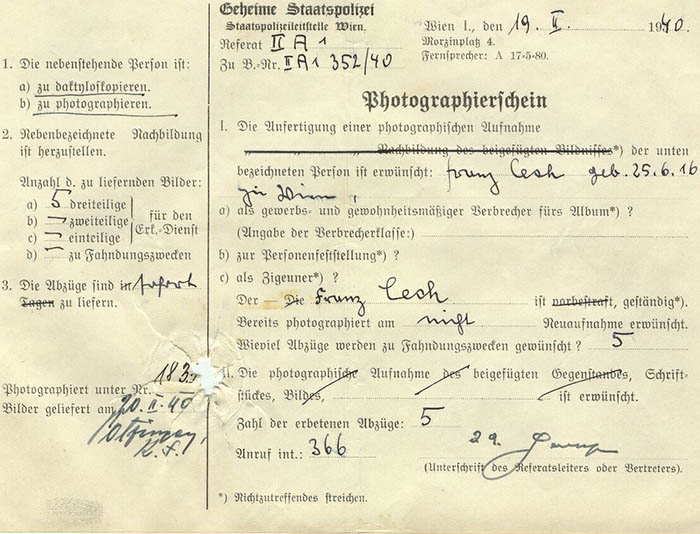 Geheime Staatspolizei
Staatspolizeileitstelle Wien.
Referat II A 1
Zu B.-Nr. II A 1 352/40
Wien I., den 19. II. 1940.
Morzinplatz 4.
Fernsprecher: A 17-5-80.
1. Die nebenstehende Person ist:
a) zu daktyloskopieren.
b) zu photographieren.
2. Nebenbezeichnete Nachbildung
ist herzustellen.
Anzahl d. zu liefernden Bilder:
a) 5 dreiteilige
b) — zweiteilige
c) — einteilige
für den
Erk.-Dienst
d) — zu Fahndungszwecken
3. Die Abzüge sind in sofort
Tagen zu liefern.
Photographiert unter Nr. 183
Bilder geliefert am 20. II. 40
Photographierschein
I. Die Anfertigung einer photographischen Aufnahme
„ „ Nachbildung des beigefügten Bildnisses*) der unten
bezeichneten Person ist erwünscht: Franz Cech geb. 25.6.16
zu Wien,
a) als gewerbs- und gewohnheitsmäßiger Verbrecher fürs Album*) ?
(Angabe der Verbrecherklasse:)
b) zur Personenfeststellung*) ?
c) als Zigeuner*) ?
Der — Die Franz Cech ist vorbestraft, geständig*).
Bereits photographiert am nicht Neuaufnahme erwünscht.
Wieviel Abzüge werden zu Fahndungszwecken gewünscht ? 5
II. Die photographische Aufnahme des beigefügten Gegenstandes, Schrift-
stückes, Bildes, ist erwünscht.
Zahl der erbetenen Abzüge: 5
Anruf int.: 366
(Unterschrift des Referatsleiters oder Vertreters).
*) Nichtzutreffendes streichen.